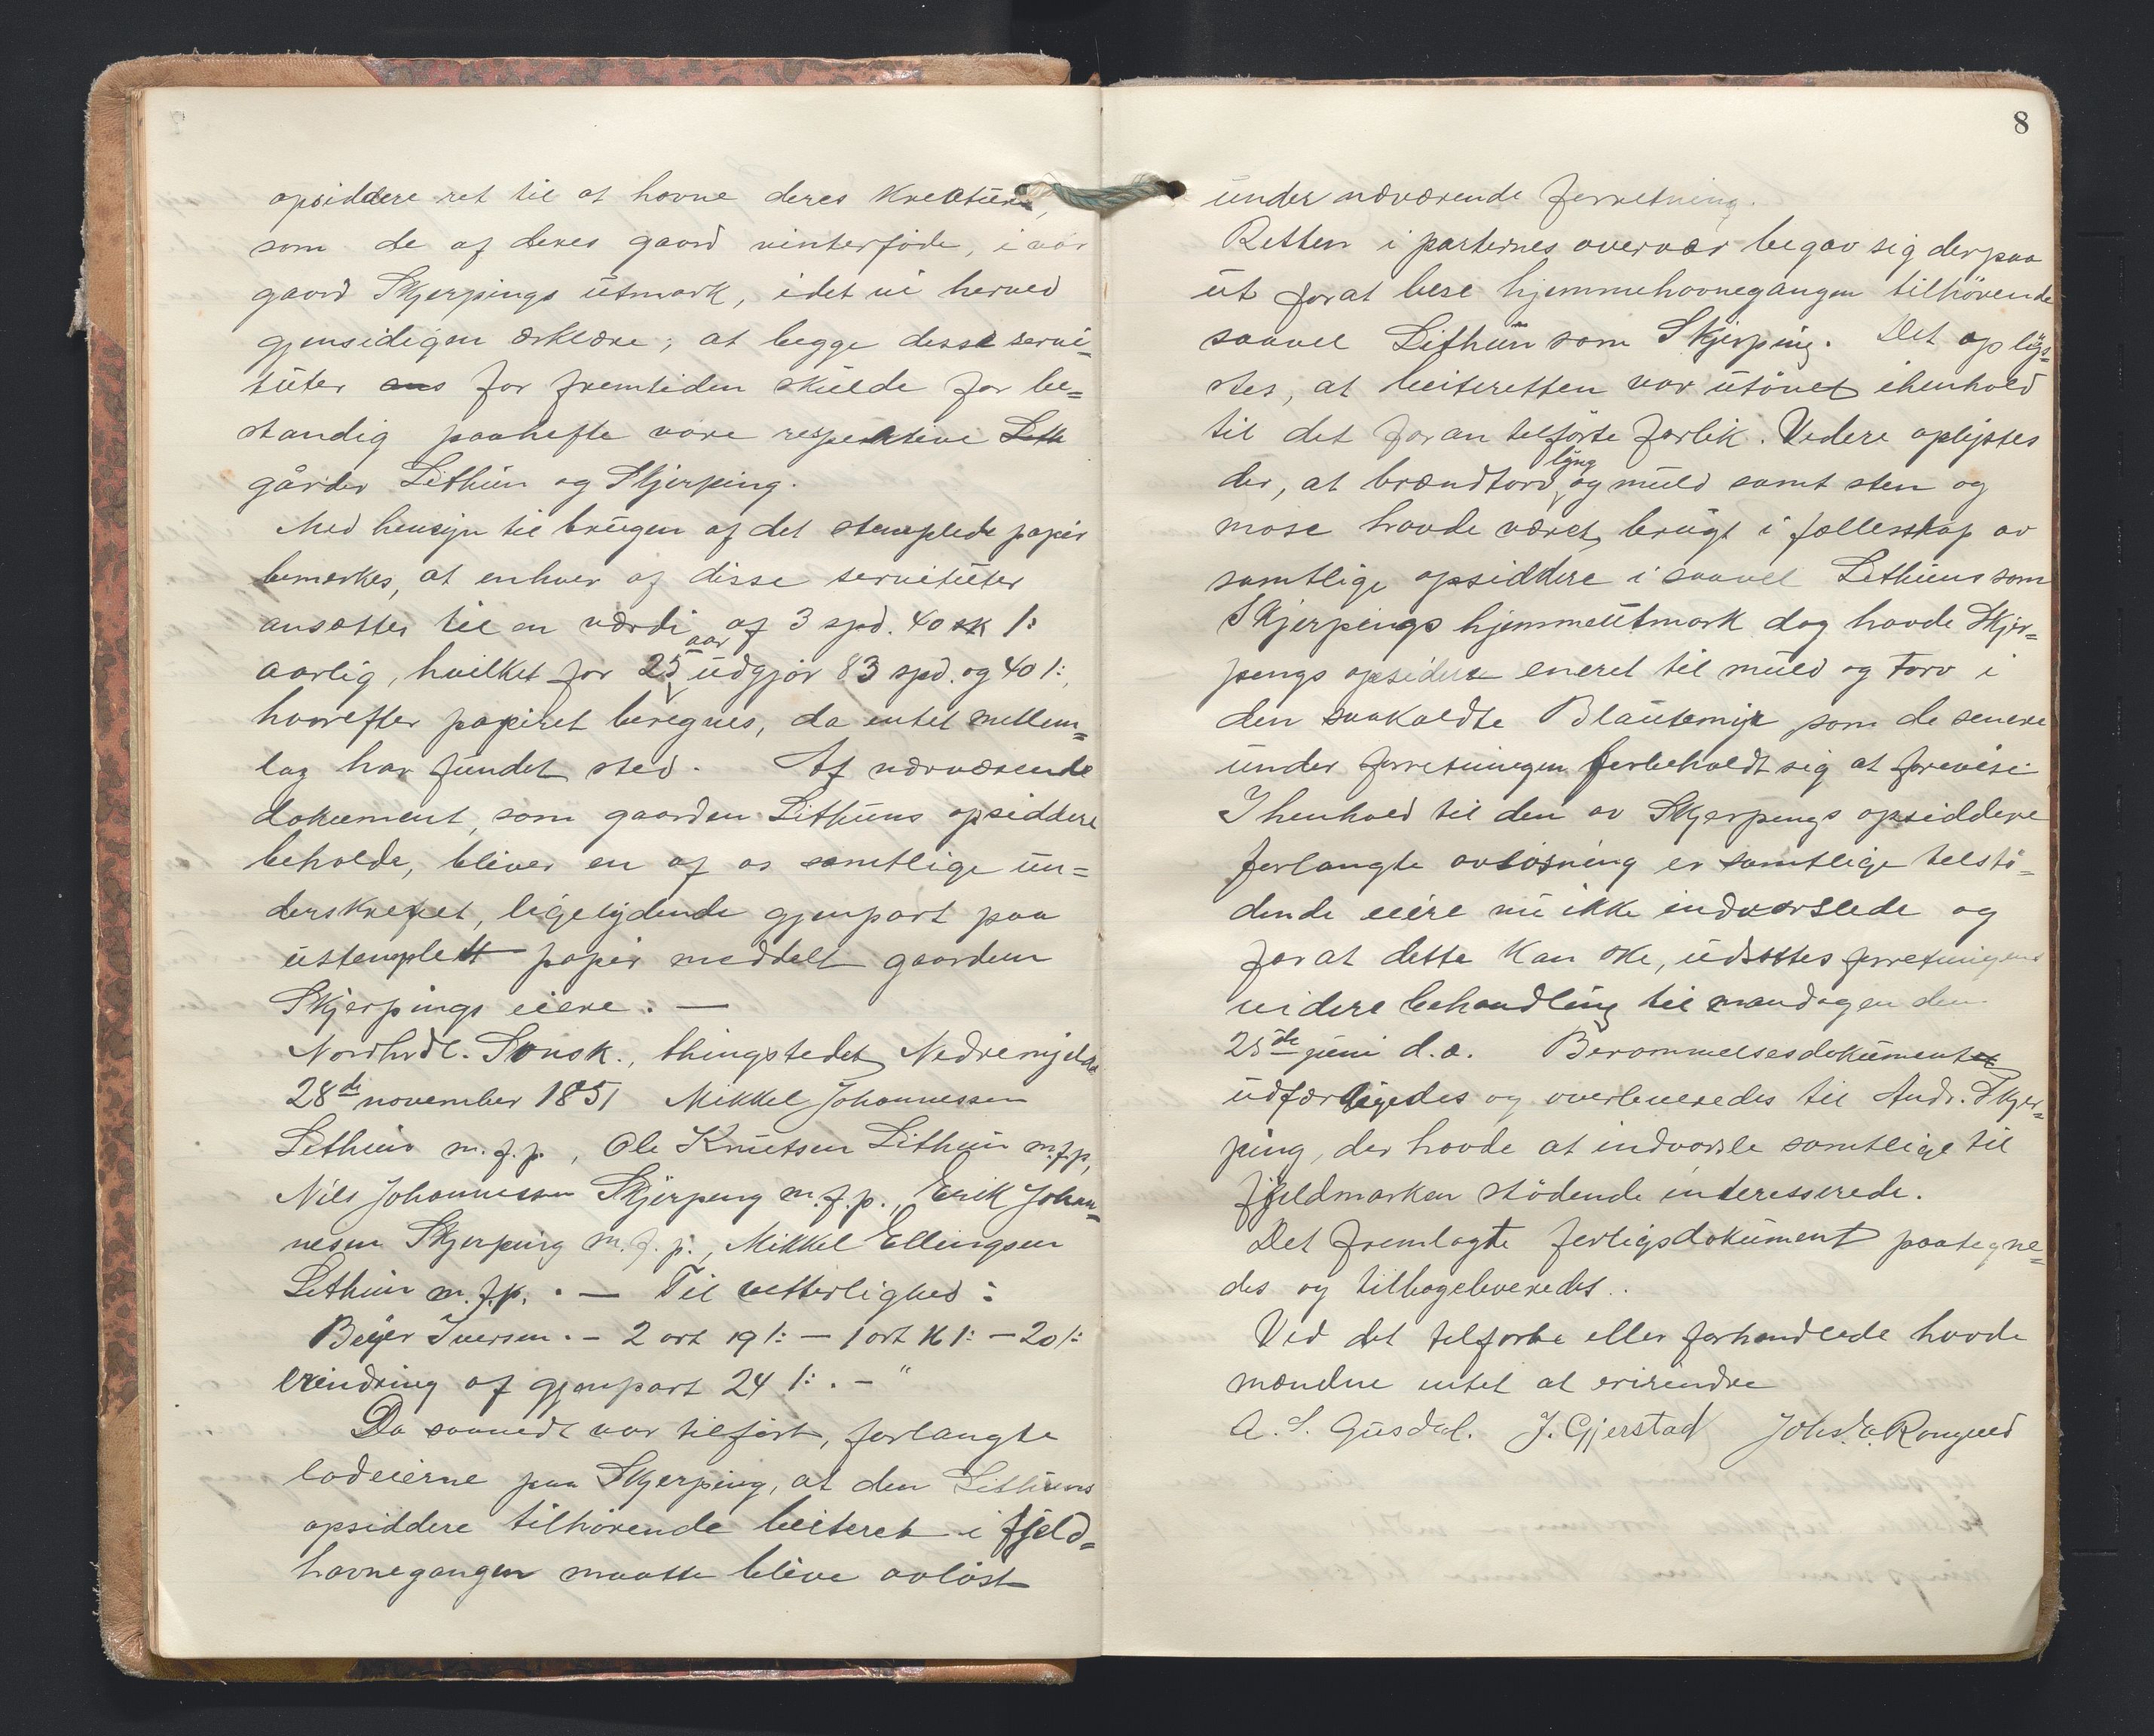 opsiddere ret til at havne deres kreatürer,
som de af deres gaard vinterføde, i vor
gaard Skjerpings ütmark, idet vi herved
gjensidigen ærklære, at begge disse servi-
tüter ans for fremtiden skülde for be=
standig paahefte vore respektive Lith
gårder Lithün og Skjerping.
Med hensyn til brügen af det stemplede papir
bemerkes, at enhver af disse servitüter
ansættes til en værdi af 3 spd. 40 sk /:
aarlig, hvilket for 25 aar üdgjør 83 spd. og 40 /:,
hvorefter papiret beregnes, da intet mellem=
lag har fündet sted. Af nærværende
dokument, som gaarden Lithüns opsiddere
beholde, bliver en af os samtlige ün=
derskrevet, ligelydende gjenpart paa
üstemplett papir meddelt gaarden
Skjerpings eiere. —
Nordhrdl. Sorensk., thingstedet Nedremjelde
28de november 1851 Mikkel Johannessen
Lethün m.f.p., Ole Knütsen Lithün m.f.p,
Nils Johannessen Skjerping m.f.p., Erik Johan=
nesen Skjerping m.f.p., Mikkel Ellingsen
Lithün m.f.p. . — Til vetterlighed :
Beyer Iversen. – 2 ort 19 /: – 1 ort 16 /: – 20 /:
erindring af gjenpart 24 /: . – "
Da saaveidt var tilført, forlangte
lodeierne paa Skjerping, at den Lithüns
opsiddere tilhørende beiteret i fjeld=
havnegangen maatte blive avløst
8
ünder nærværende forretning.
Retten i parternes overvær begav sig derpaa
üt for at bese hjemmehavnegangen tilhørende
saavel Lithün som Skjerping. Det oplys=
stes, at beiteretten var ütövet i henhold
til det foran tilførte forlik. Videre oplystes
der, at brændtorv, lyng og müld samt sten og
mose havde været brügt i fællesskap av
samtlige opsiddere i saavel Lithüns som
Skjerpings hjemmeütmark dog havde Skjer=
pengs opsidere eneret til müld og Torv i
den saakaldte Blautemyr som de senere
ünder forretningen forbeholdt sig at forevise
I henhold til den av Skjerpings opsiddere
forlangte avløsning er samtlige tilstö=
dende eiere nü ikke indvarslede og
for at dette kan ske, üdsættes forretningens
videre behandling til mandagen den
25de jüni d.a. Berammelsesdokümentet
üdfærdigedes og overleveredes til Andr. Skjer=
ping, der havde at indvarsle samtlige til
fjeldmarken stödende interesserede.
Det fremlagte forligsdokument paategne=
des og tilbageleveredes..
Ved det tilførte eller forhandlede havde
mændne intet at eririndre
A. S. Güsdal. J. Gjerstad Johs. A. Romyeld